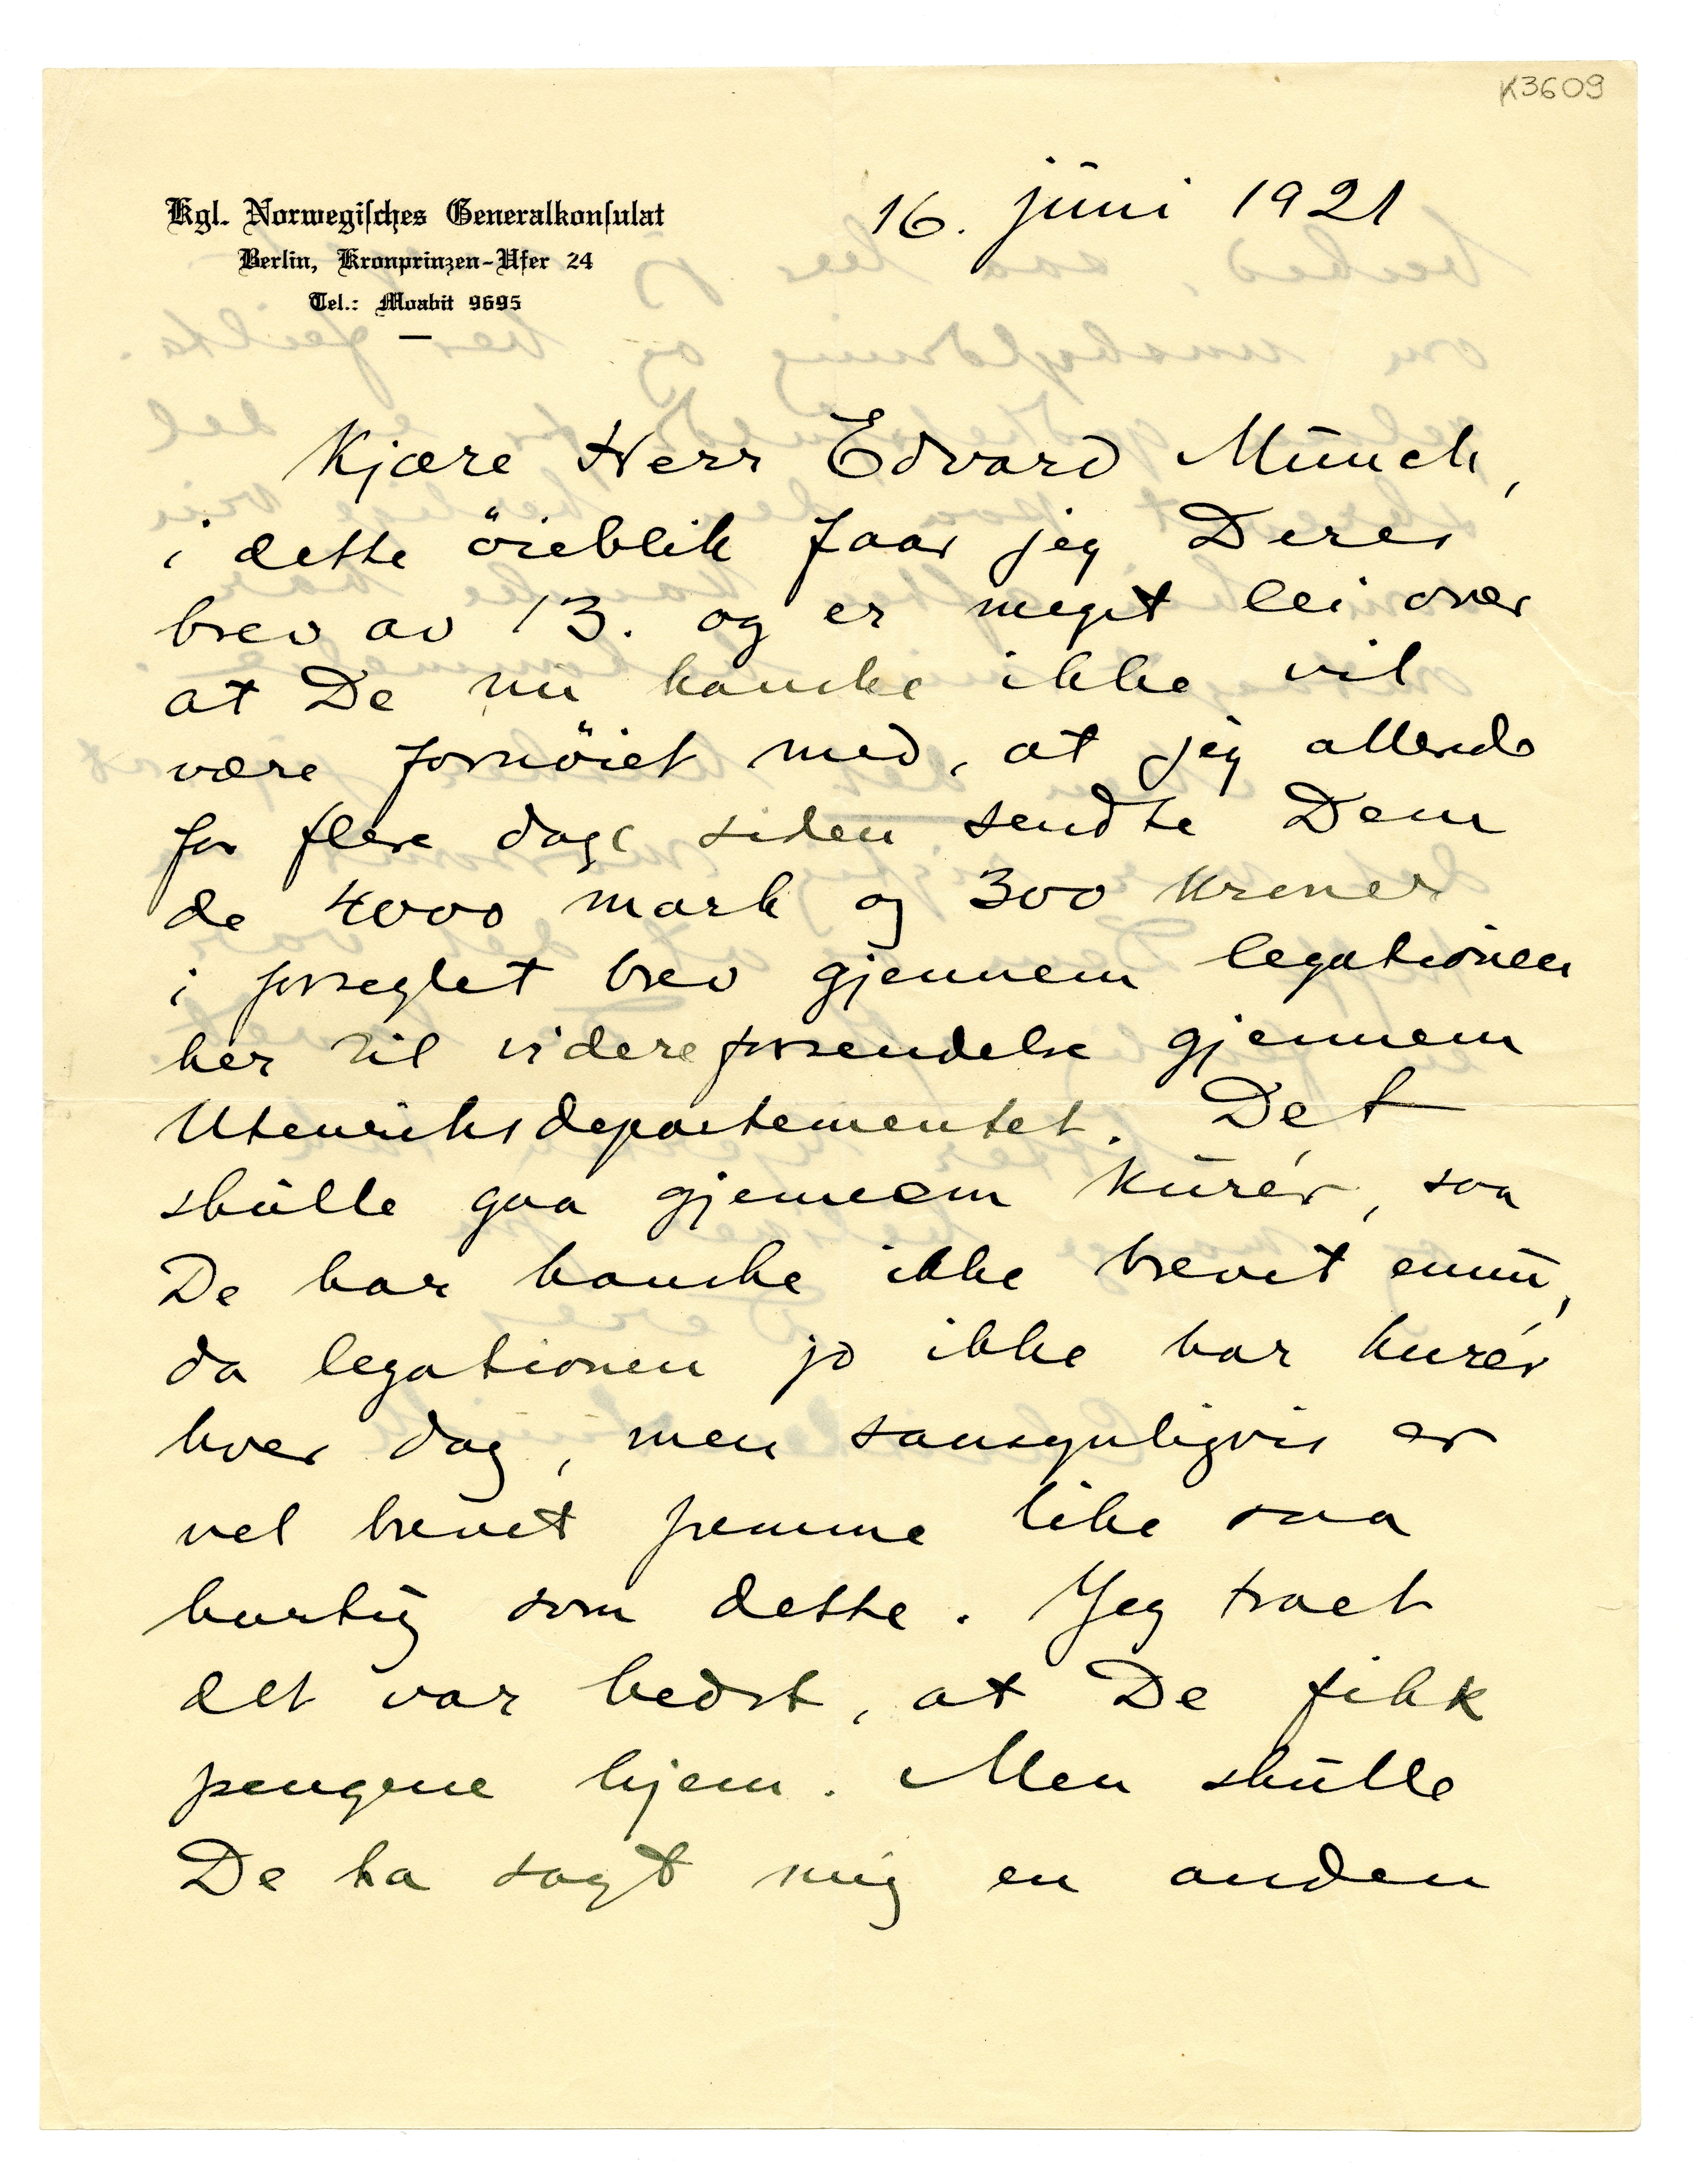 K3609
Kgl. Norwegisches Generalkonsulat
Berlin, Kronprinzen-Ufer 24
Tel.: Moabit 9695
16. juni 1921
Kjære Herr Edvard Munch,
i dette öieblik faar jeg Deres
brev av 13. og er meget lei over
at De nu kanske ikke vil
være fornöiet med, at jeg allerede
for flere dage siden sendte Dem
de 4000 mark og 300 kroner
i forseglet brev gjennem legationen
her til videreforsendelse gjennem
Utenriksdepartementet. Det
skulle gaa gjennem kurér, saa
De har kanske ikke brevet ennu,
da legationen jo ikke har kurér
hver dag, men sansynligvis er
vel brevet fremme like saa
hurtig som dette. Jeg traet
det var bedst, at De fikk
pengene hjem. Men skulle
De ha sagt mig en anden